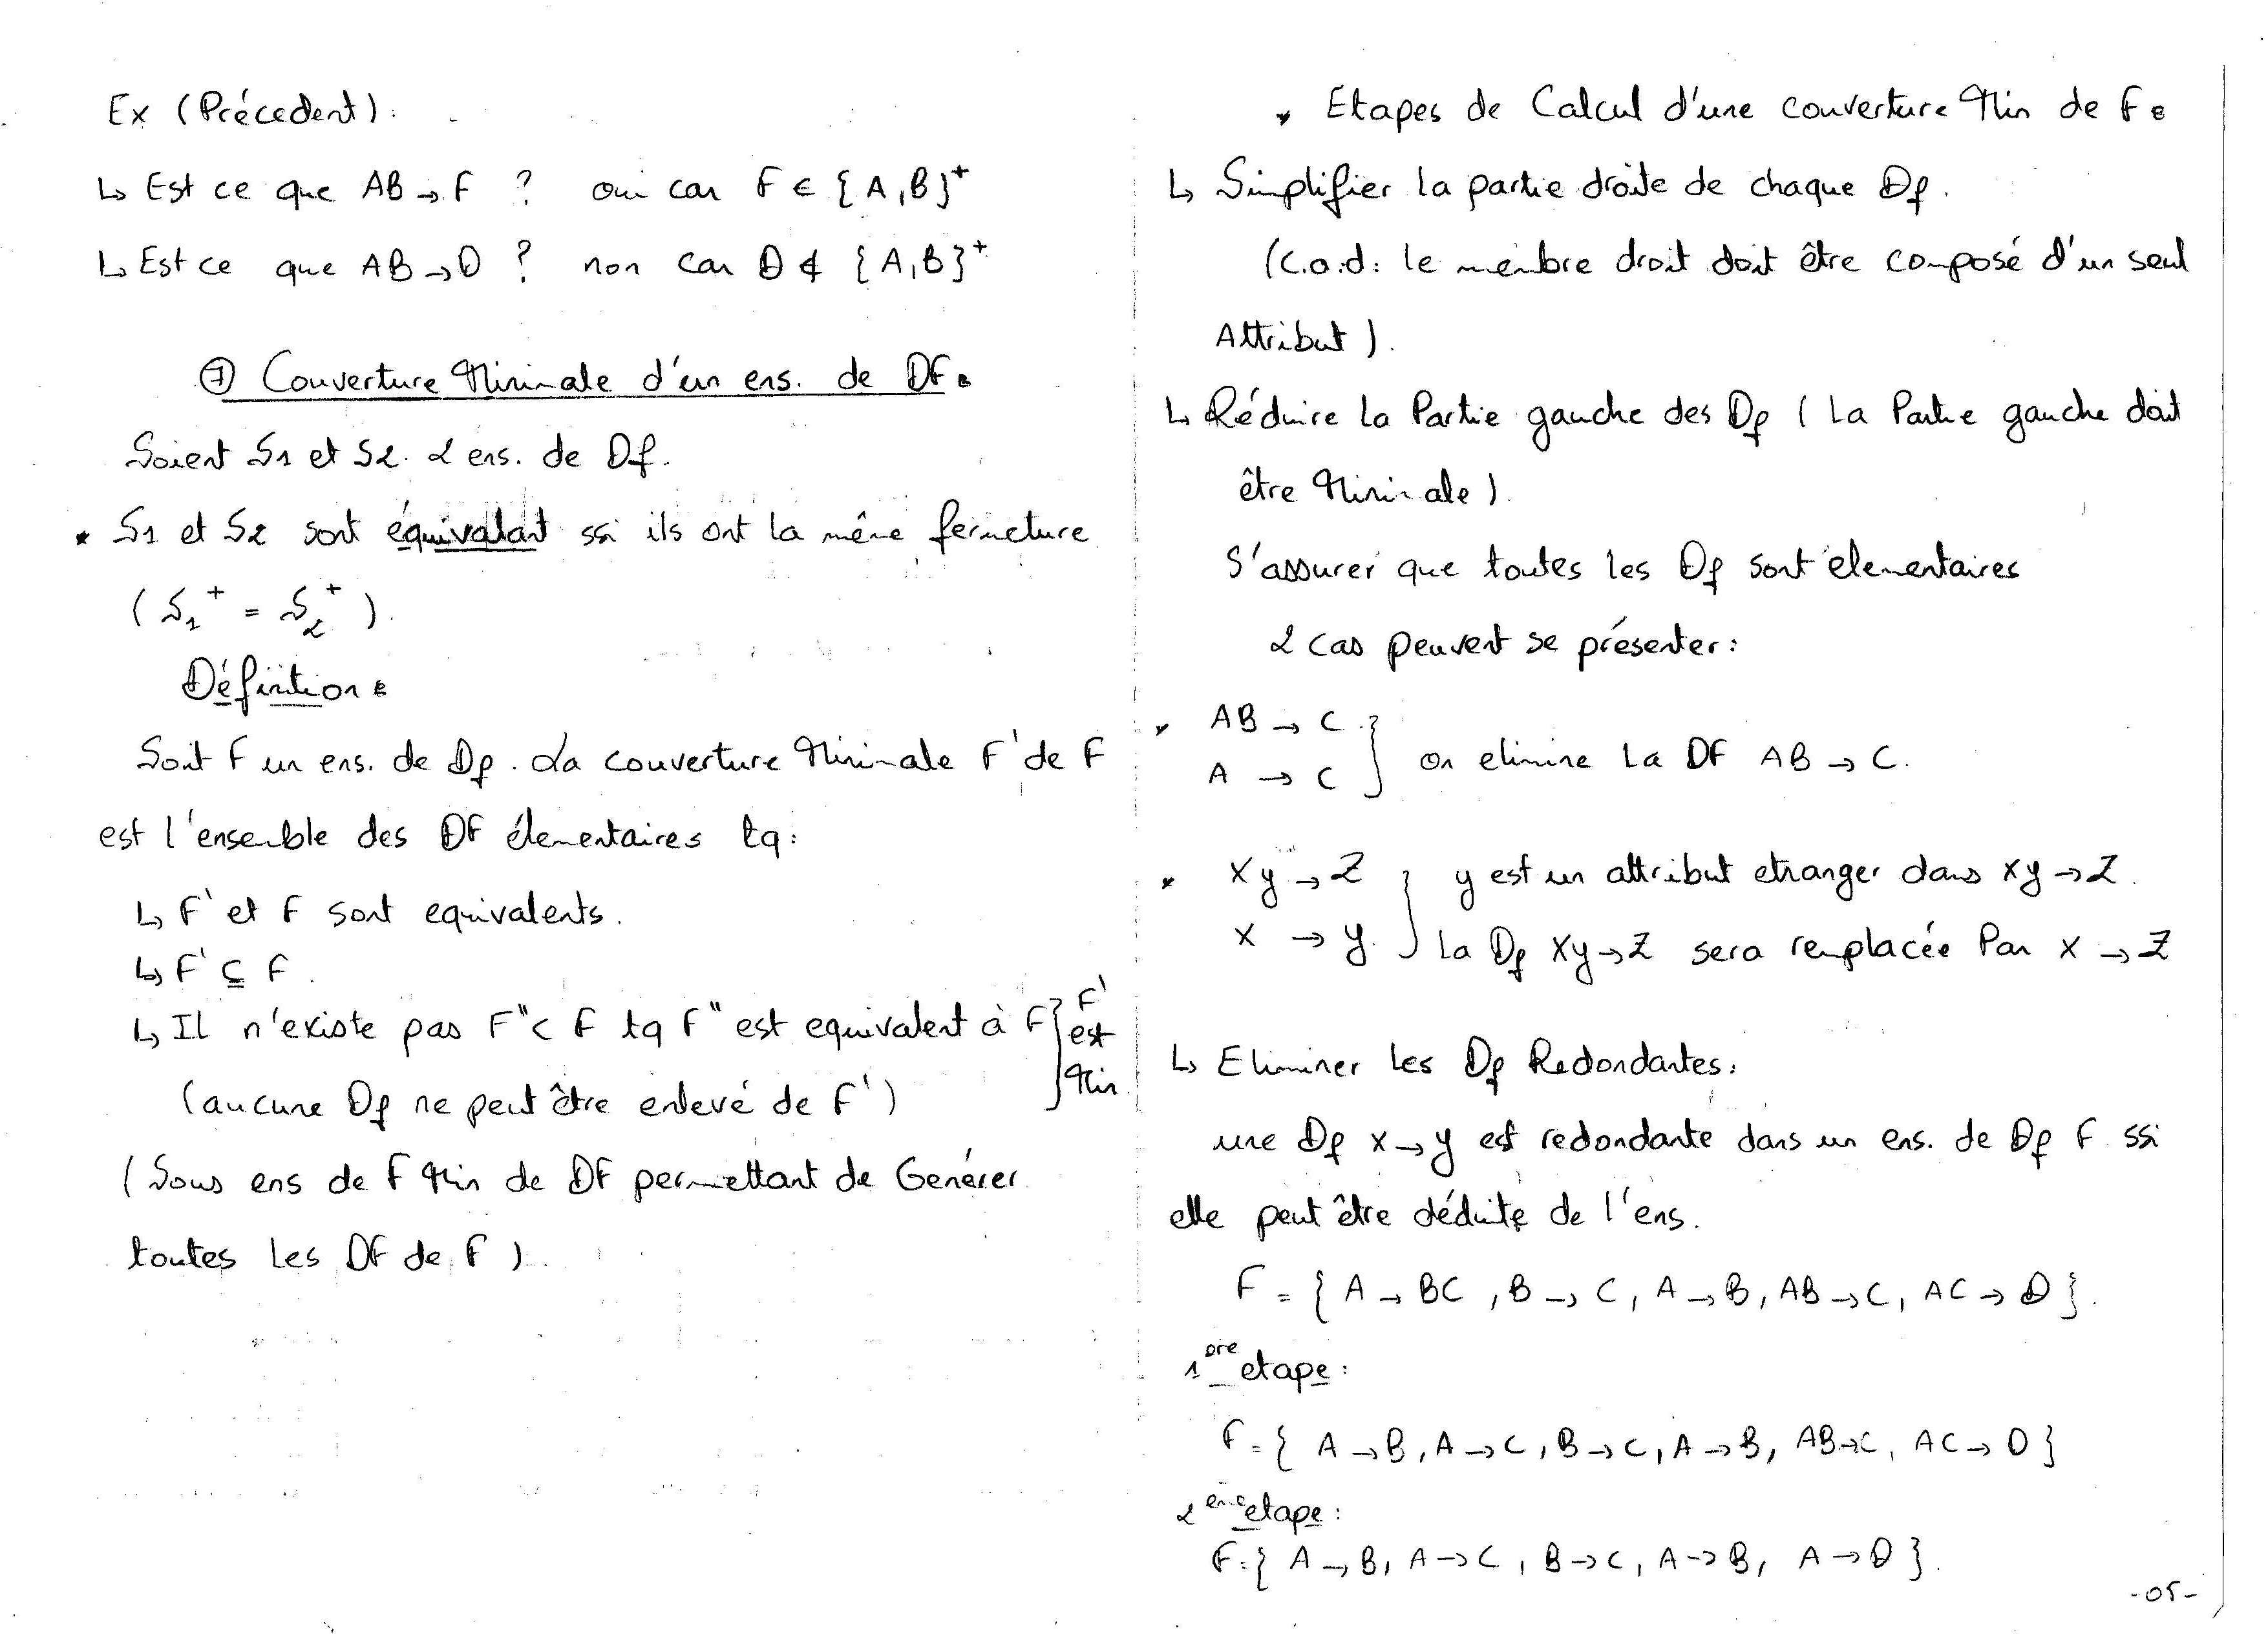 Ex (Précedent):
↳ Est ce que AB → F ? oui car F ∈ {A,B}⁺
↳ Est ce que AB → D ? non car D ∉ {A,B}⁺
⑦ Couverture Minimale d'un ens. de DF.
Soient S1 et S2. 2 ens. de Df.
* S1 et S2 sont équivalant ssi ils ont la même fermeture
(S₁⁺ = S₂⁺).
Définition:
Soit F un ens. de Df. La couverture Minimale F' de F
est l'ensemble des DF élementaires tq:
↳ F' et F sont equivalents.
↳ F' ⊆ F.
↳ Il n'existe pas F" ⊂ F tq F" est equivalent à F } F' est Min
(aucune Df ne peut être enlevé de F')
(Sous ens de F Min de DF permettant de Genérer
toutes les DF de F).
* Etapes de Calcul d'une couverture Min de F:
↳ Simplifier la partie droite de chaque Df.
(c.a.d: le membre droit doit être composé d'un seul
Attribut).
↳ Réduire la Partie gauche des Df (La Partie gauche doit
être Minimale).
S'assurer que toutes les Df sont élementaires
2 cas peuvent se présenter:
* AB → C
A → C } on elimine La DF AB → C.
* Xy → Z } y est un attribut etranger dans Xy → Z.
X → y. la Df Xy → Z sera remplacée Par X → Z
↳ Eliminer Les Df Redondantes:
une Df X → y est redondante dans un ens. de Df F ssi
elle peut être déduite de l'ens.
F = { A → BC, B → C, A → B, AB → C, AC → D }.
1ère etape:
F = { A → B, A → C, B → C, A → B, AB → C, AC → D }
2ème etape:
F = { A → B, A → C, B → C, A → B, A → D }.
-05-